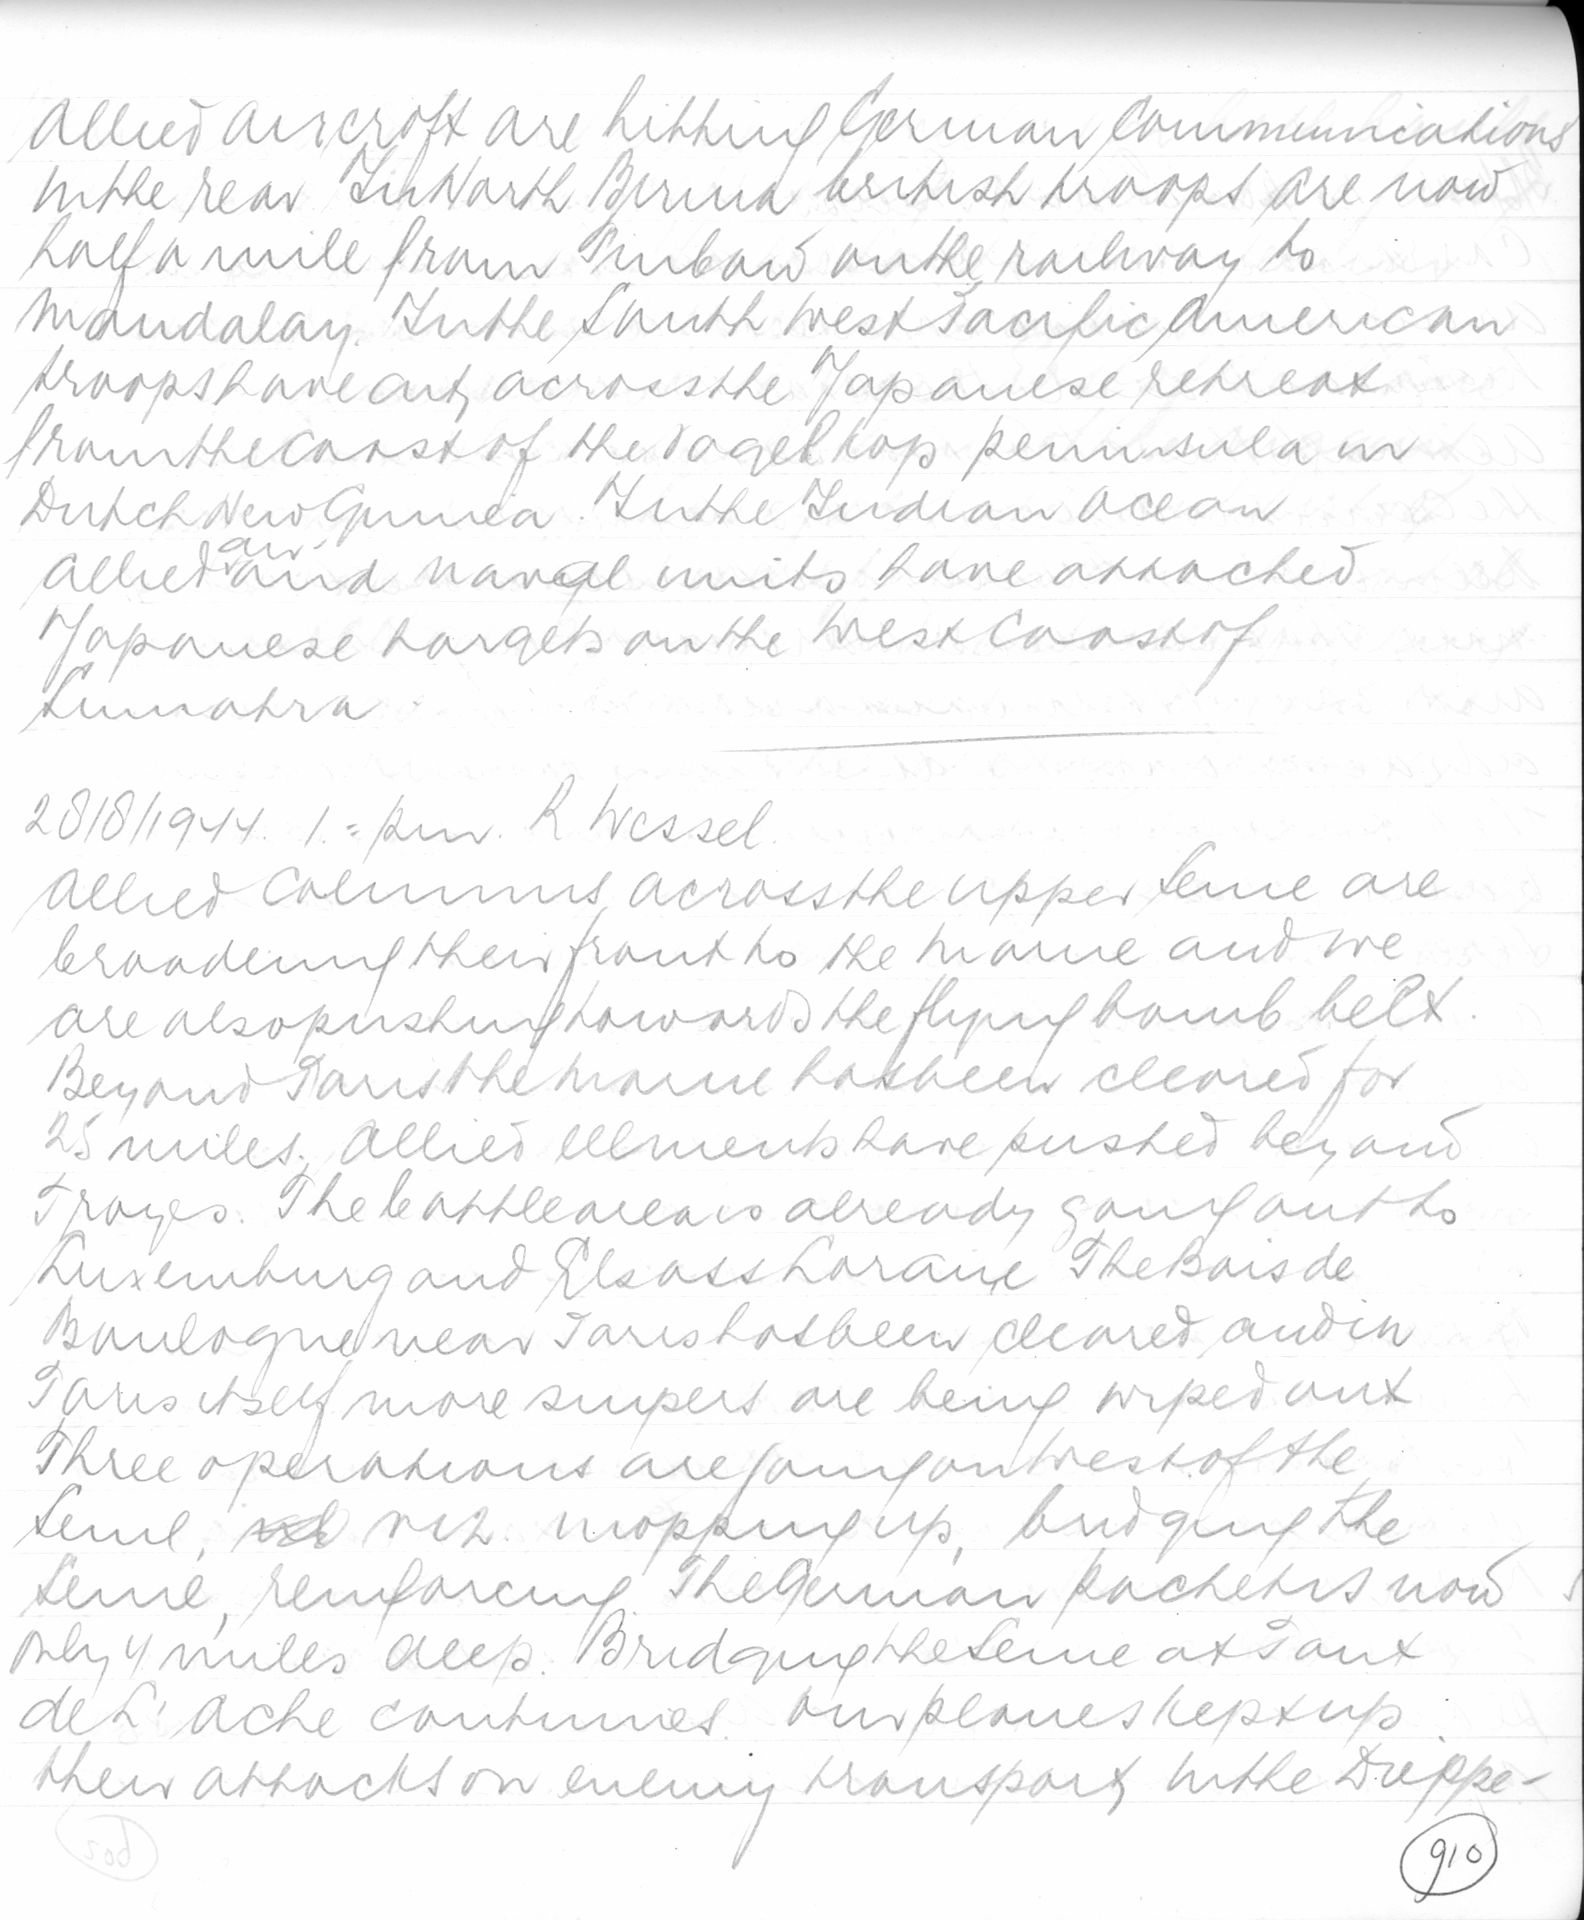 Allied aircroft are hitting German Communications
in the rear. In North Burma british troops are now
half a mile from Pinbaw on the railway to
Mandalay. In the South West Pacific American
troops have cut across the Japanese retreat
from the coast of the Vogelkop peninsula in
Dutch New Guinea. In the Indian Ocean
air
Allied and naval units have attacked
Japanese targets on the West Coast of
Sumatra
28/8/1944. 1.= pm. R Wessel.
Allied Columns across the upper Seine are
broadening their front to the Marne and we
are also pushing towards the flying bomb belt.
Beyond Paris the Marne has been cleared for
25 miles. Allied ellments have pushed beyond
Troyes. The battle area is already going out to
Luxemburg and Elsass Loraine The Bois de
Boulogne near Paris has been cleared, and in
Paris itself more snipers are being wiped out
Three operations are going on West of the
Seine, viz. mopping up, bridging the
Seine, reinforcing. The German pocket is now
only 4 miles deep. Bridging the Seine at Pont
de L'Ache continues. Our planes kept up
their attacks on enemy transport, in the Dieppe-
910